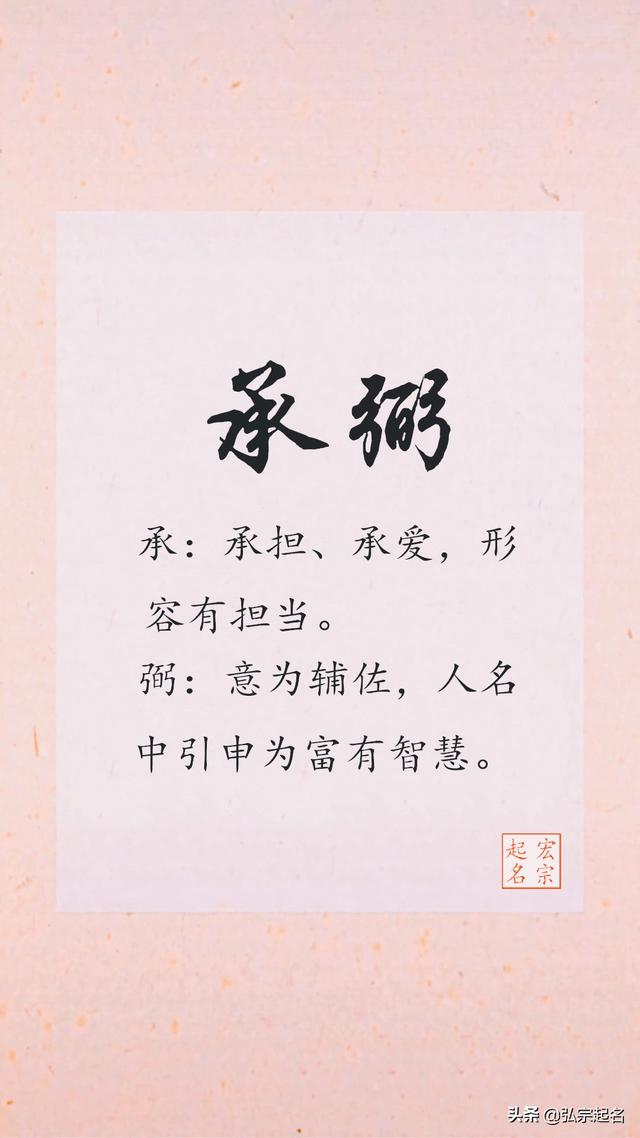 承弼
承：承担、承爱，形
容有担当。
弼：意为辅佐，人名
中引申为富有智慧。
宏宗
起名
头条 @弘宗起名